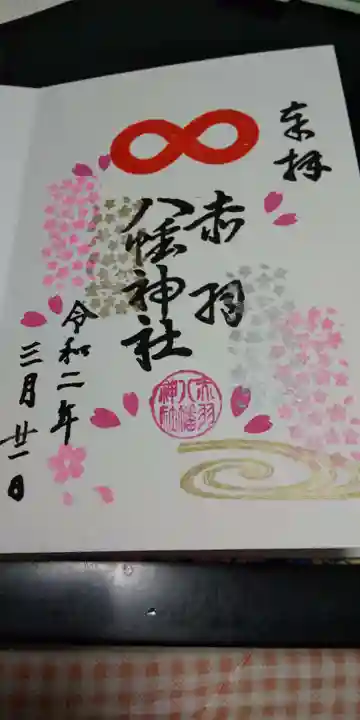 奉拝
赤羽
八幡神社
令和二年
三月廿一日
赤羽
八幡
神社